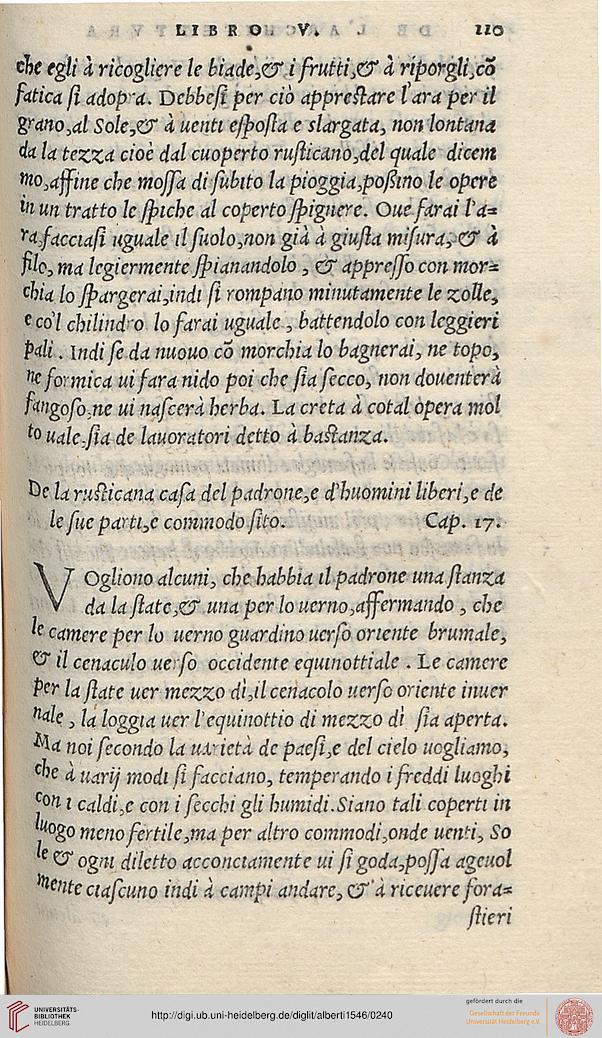 LIBRO V. 110
che egli à ricogliere le biade,& i frutti,& à riporgli,cõ
fatica si adopra. Debbesi per ciò apprestare l'ara per il
grano,al Sole,& à uenti esposta e slargata, non lontana
da la tezza cioè dal cuoperto rusticano,del quale dicem
mo,affine che mossa di subito la pioggia,possino le opere
in un tratto le spiche al coperto spignere. Oue farai l'a=
ra,facciasi uguale il suolo,non già à giusta misura,& à
filo, ma legiermente spianandolo , & appresso con mor=
chia lo spargerai,indi si rompano minutamente le zolle,
e co'l chilindro lo farai uguale , battendolo con leggieri
pali . Indi se da nuouo cõ morchia lo bagnerai, ne topo,
ne formica ui fara nido poi che sia secco, non douenterà
fangoso,ne ui nascerà herba. La creta à cotal opera mol
to uale.sia de lauoratori detto à bastanza.
De la rusticana casa del padrone,e d'huomini liberi,e de
le sue parti,e commodo sito. Cap. 17.
VOgliono alcuni, che habbia il padrone una stanza
da la state,& una per lo uerno,affermando , che
le camere per lo uerno guardino uerso oriente brumale,
& il cenaculo uerso occidente equinottiale . Le camere
per la state uer mezzo dì,il cenacolo uerso oriente inuer
nale , la loggia uer l'equinottio di mezzo dì sia aperta.
Ma noi secondo la uarietà de paesi,e del cielo uogliamo,
che à uarij modi si facciano, temperando i freddi luoghi
con i caldi,e con i secchi gli humidi.Siano tali coperti in
luogo meno fertile,ma per altro commodi,onde uenti, So
le & ogni diletto acconciamente ui si goda,possa ageuol
mente ciascuno indi à campi andare, & à riceuere fora=
stieri
UNIVERSITÄTS-
BIBLIOTHEK
HEIDELBERG
http://digi.ub.uni-heidelberg.de/diglit/alberti1546/0240
gefördert durch die
Gesellschaft der Freunde
Universität Heidelberg e.V.